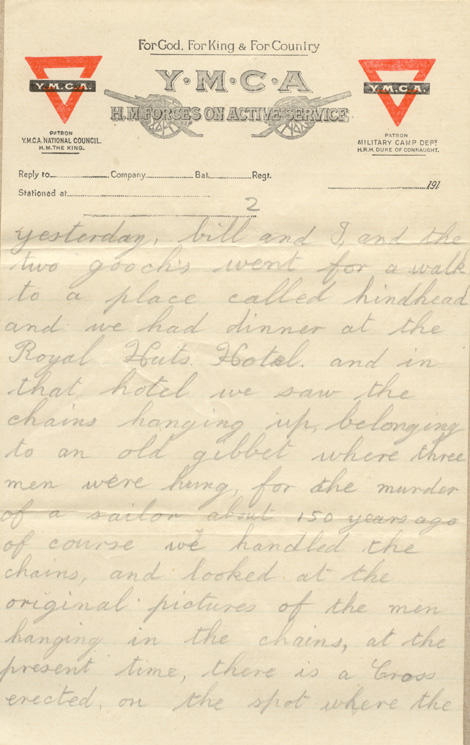 For God, For King & For Country
Y.M.C.A
H.M FORCES ON ACTIVE SERVICE
Y.M.C.A.
PATRON
Y.M.C.A. NATIONAL COUNCIL.
H.M. THE KING.
Y.M.C.A.
PATRON
MILITARY CAMP DEPT
H.R.H. DUKE OF CONNAUGHT.
Reply to Company Bat. Regt.
Stationed at 191
2
yesterday, bill and I, and the
two gooch's went for a walk
to a place called hindhead
and we had dinner at the
Royal Huts Hotel. and in
that hotel we saw the
chains hanging up, belonging
to an old gibbet where three
men were hung, for the murder
of a sailor about 150 years ago
of course we handled the
chains, and looked at the
original pictures of the men
hanging in the chains, at the
present time, there is a Cross
erected, on the spot where the